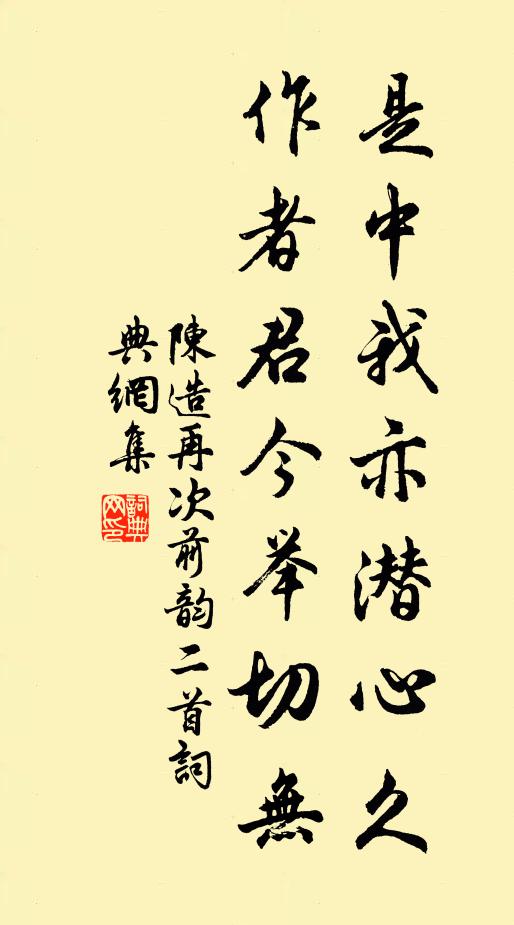 是中我亦潜心久
作者君今举切無
陳造再次前韵二首詞
典網集
詞典
网印